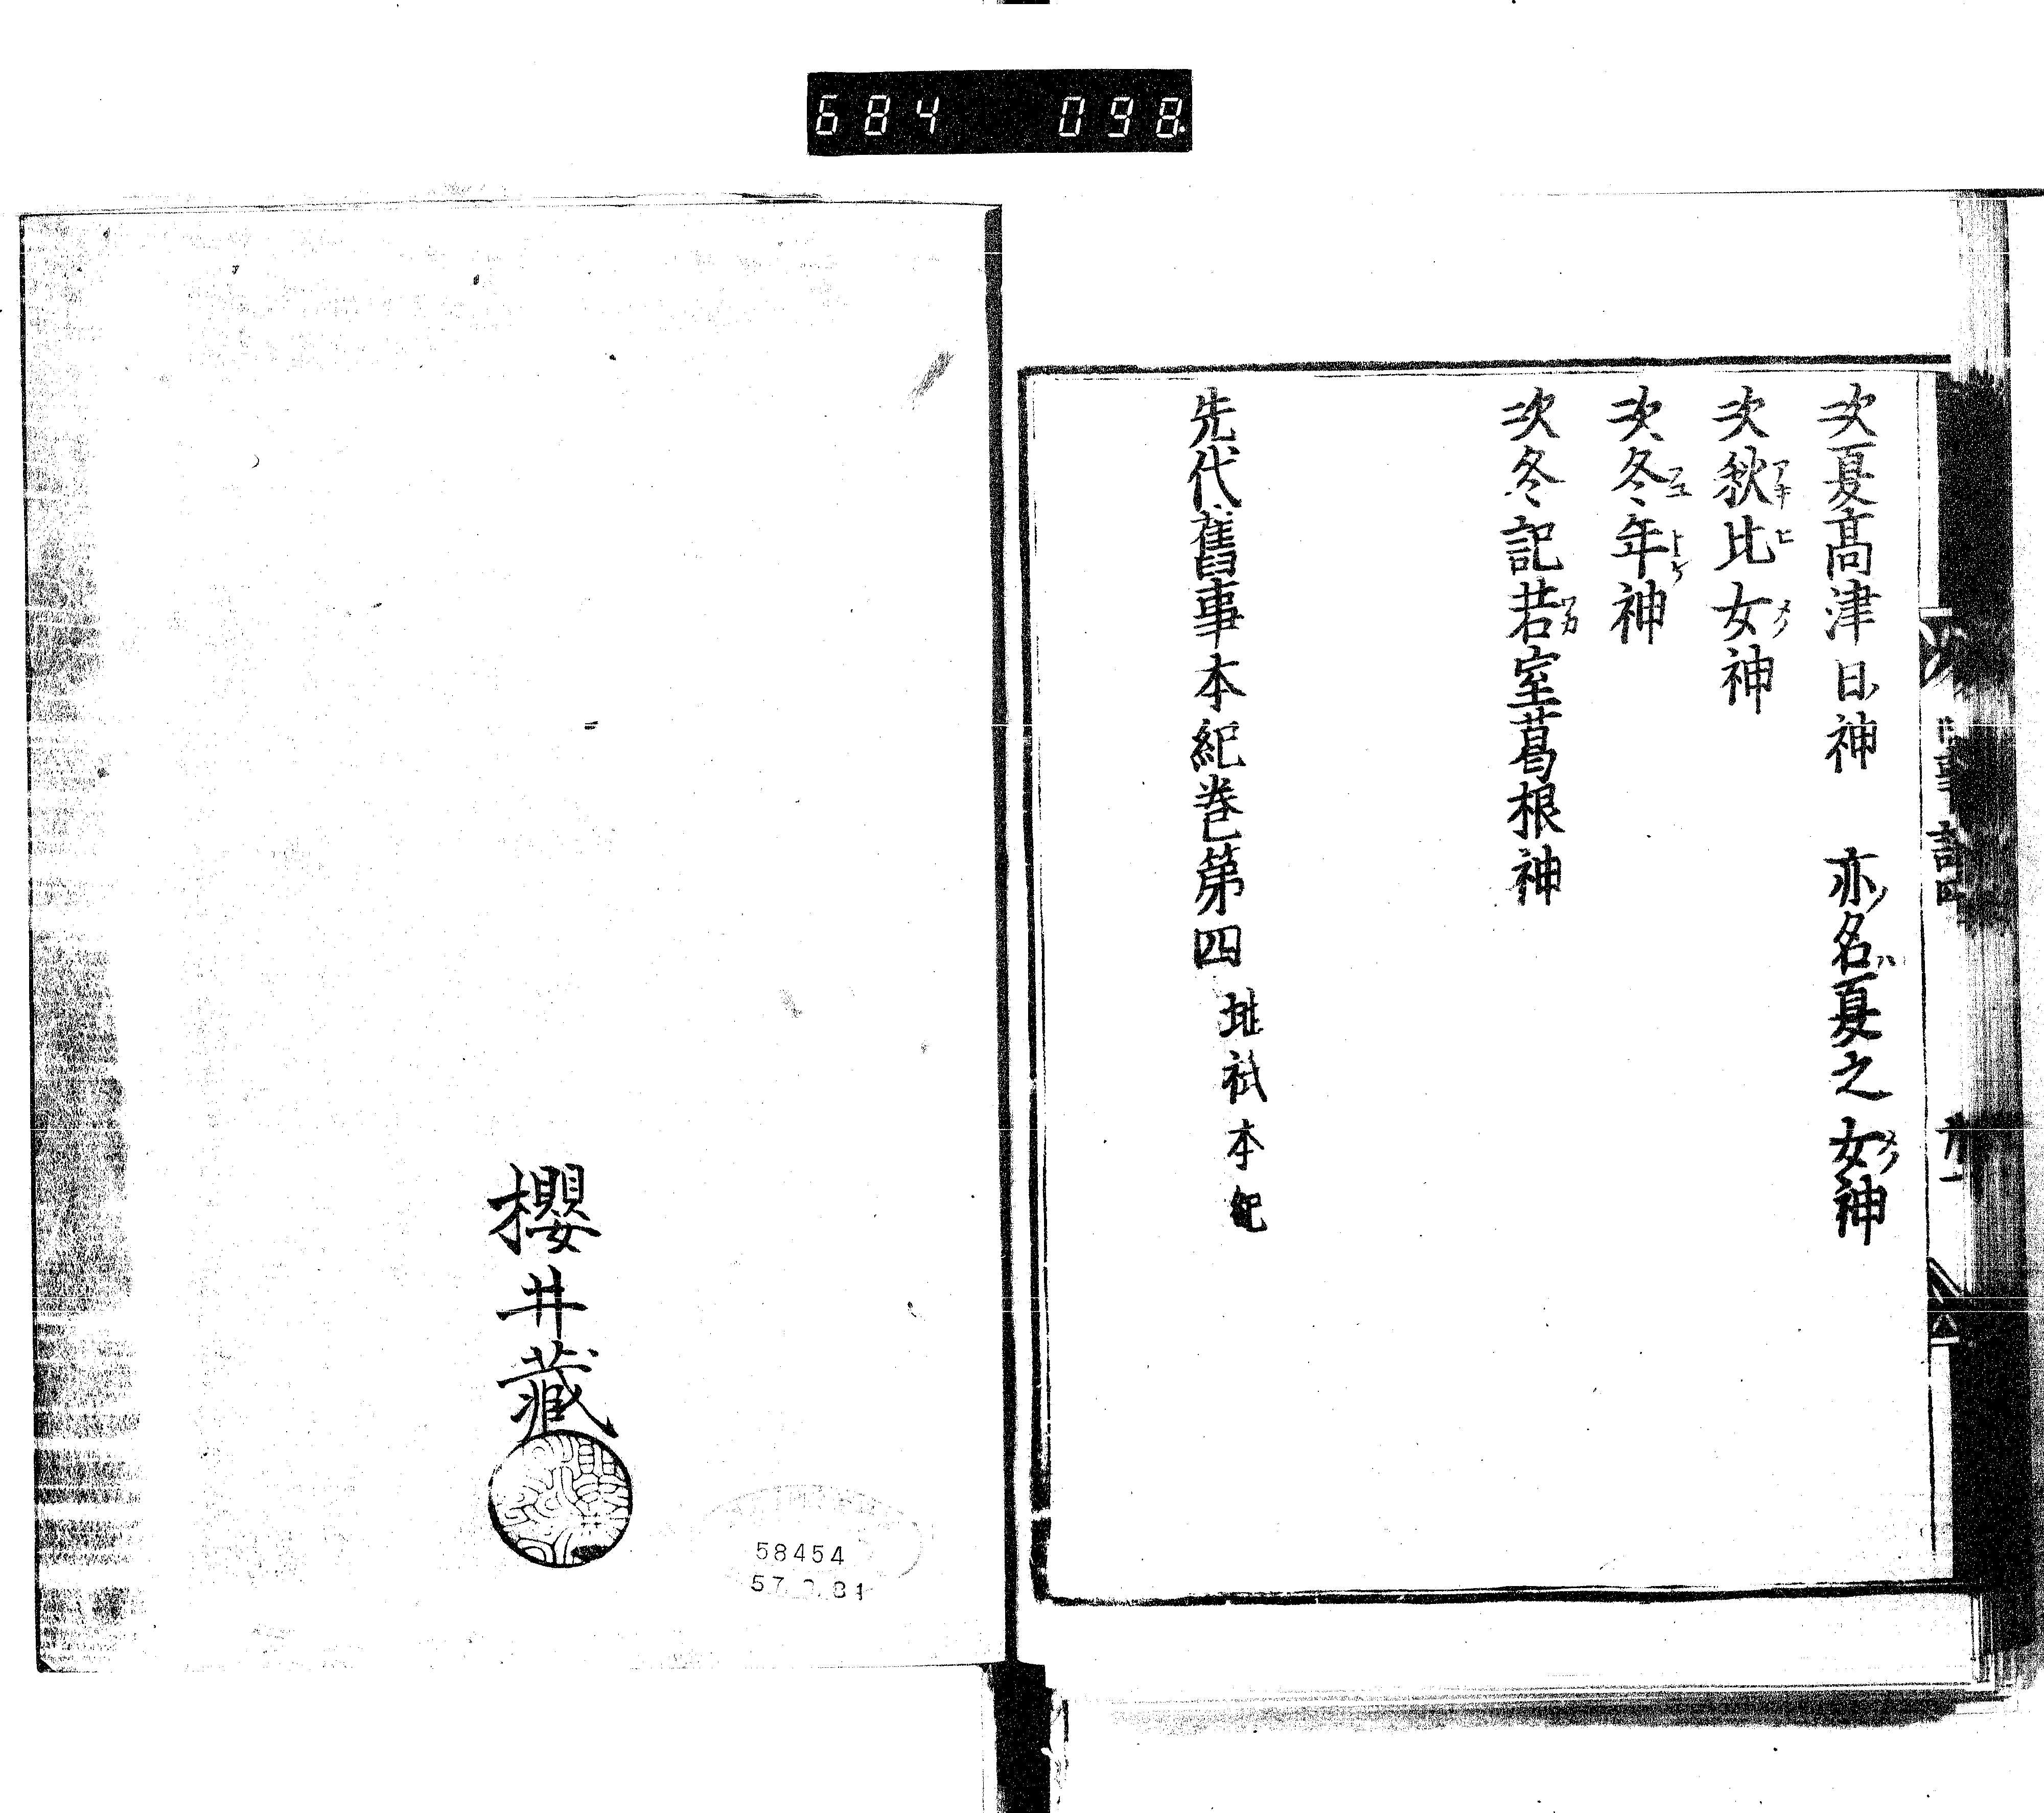 684 098
次夏高津日神 亦名夏之女神
次秋比女神
次冬年神
次冬記若室葛根神
先代舊事本紀巻第四 地祇本紀
櫻井藏
58454